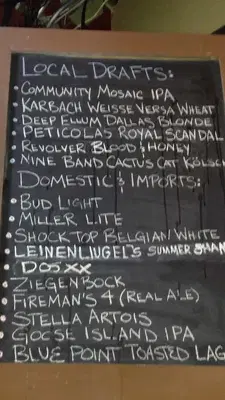 LOCAL DRAFTS:
• COMMUNITY MOSAIC IPA
• KARBACH WEISSE VERSA WHEAT
• DEEP ELLUM DALLAS BLONDE
• PETICOLAS ROYAL SCANDAL
• REVOLVER BLOOD & HONEY
• NINE BAND CACTUS CAT KÖLSCH
DOMESTIC & IMPORTS:
• BUD LIGHT
• MILLER LITE
• SHOCK TOP BELGIAN WHITE
• LEINENLUGEL'S SUMMER SHAN
• DOS XX
• ZIEGENBOCK
• FIREMAN'S 4 (REAL ALE)
• STELLA ARTOIS
• GOOSE ISLAND IPA
• BLUE POINT TOASTED LAG